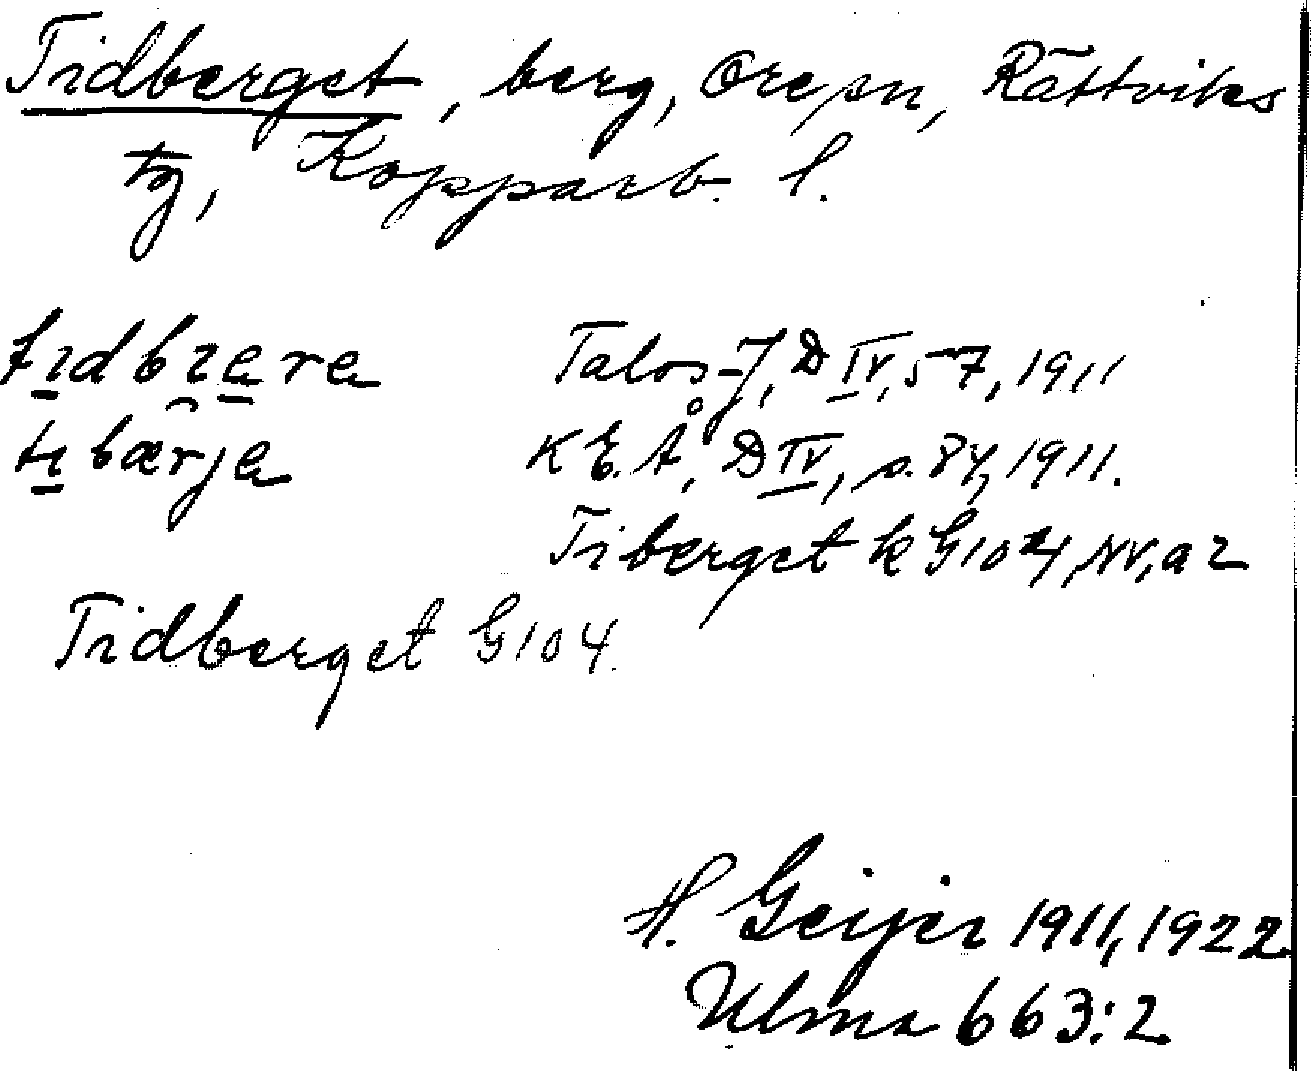 Tidberget, berg, Ore sn, Rättviks
tg, Kopparb. l.
tıdbıæra Talos J, D IV, 57, 1911
tıbærja K E. Å, D IV, s. 84, 1911.
Tiberget k G 104, NV, a 2
Tidberget G 104.
H. Geijer 1911, 1922
Ulma 663:2